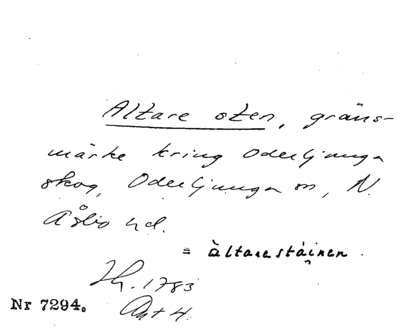 Altare sten, gräns-
märke kring Oderljunga
skog, Oderljunga sn, N.
Åsbo hd.
= àltarestáinen.
Lh. 1783
Akt 4.
Nr 7294.